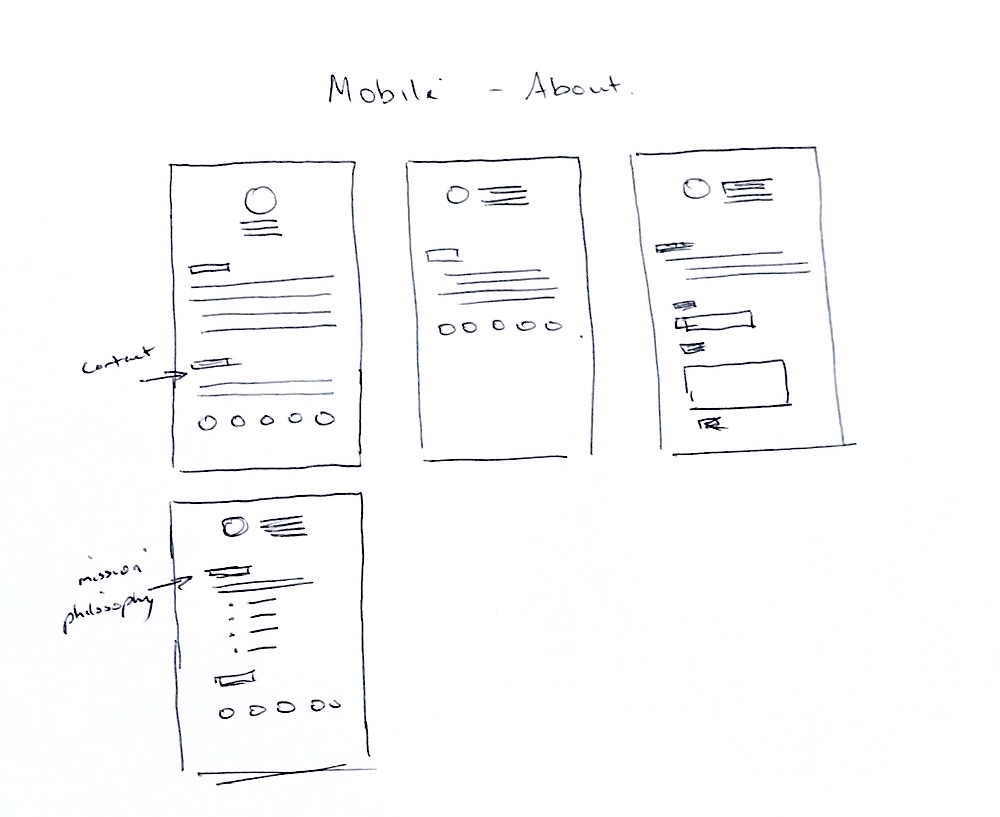 Mobile - About.
Contact
mission
philosophy